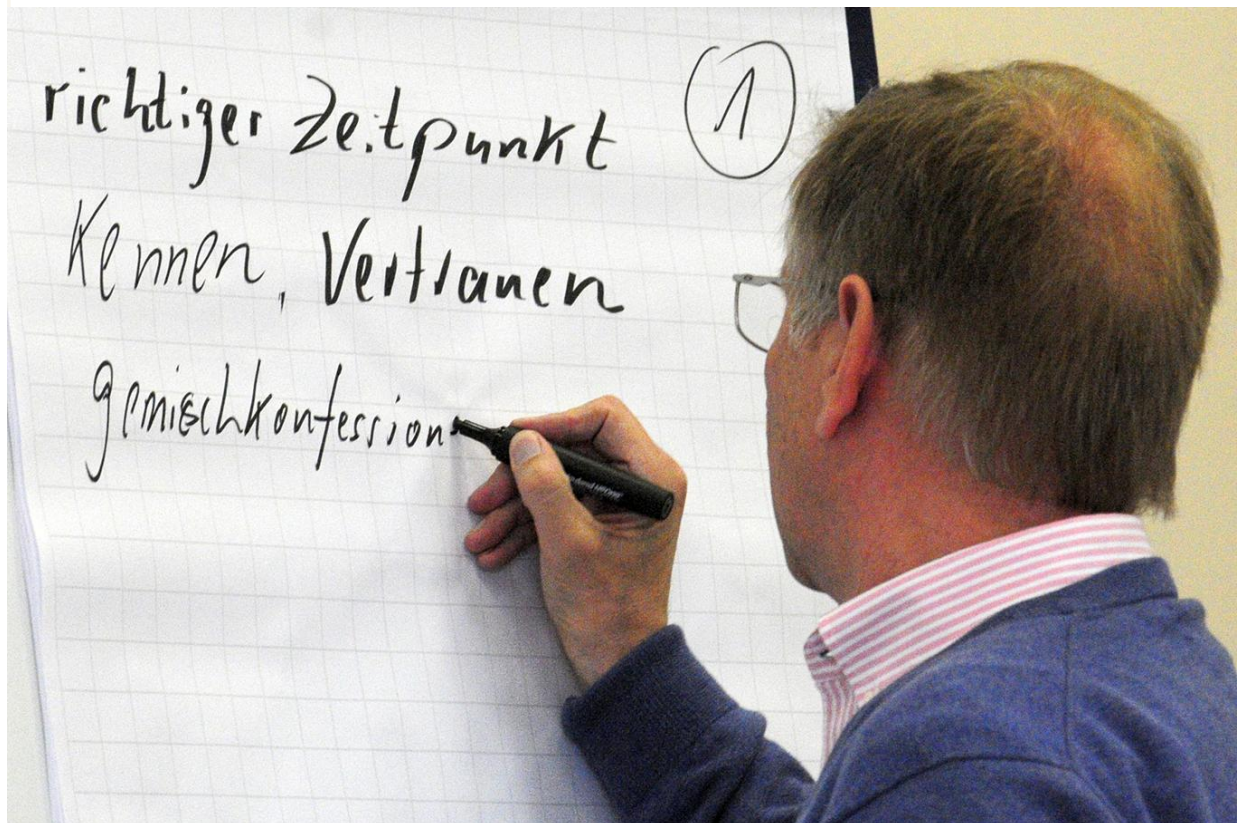 richtiger Zeitpunkt ①
Kennen, Vertrauen
gemischkonfession